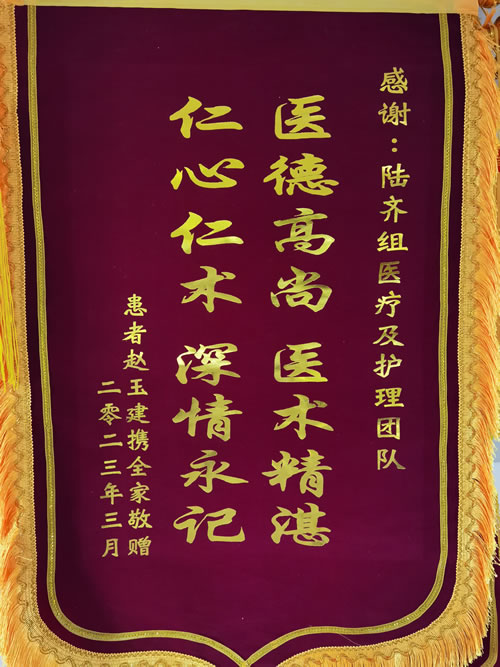 感谢：陆齐组医疗及护理团队
医德高尚 医术精湛
仁心仁术 深情永记
患者赵玉建携全家敬赠
二零二三年三月